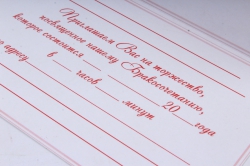 Приглашаем Вас на торжество,
посвященное нашему Бракосочетанию,
которое состоится " " 20 года
в часов минут
по адресу